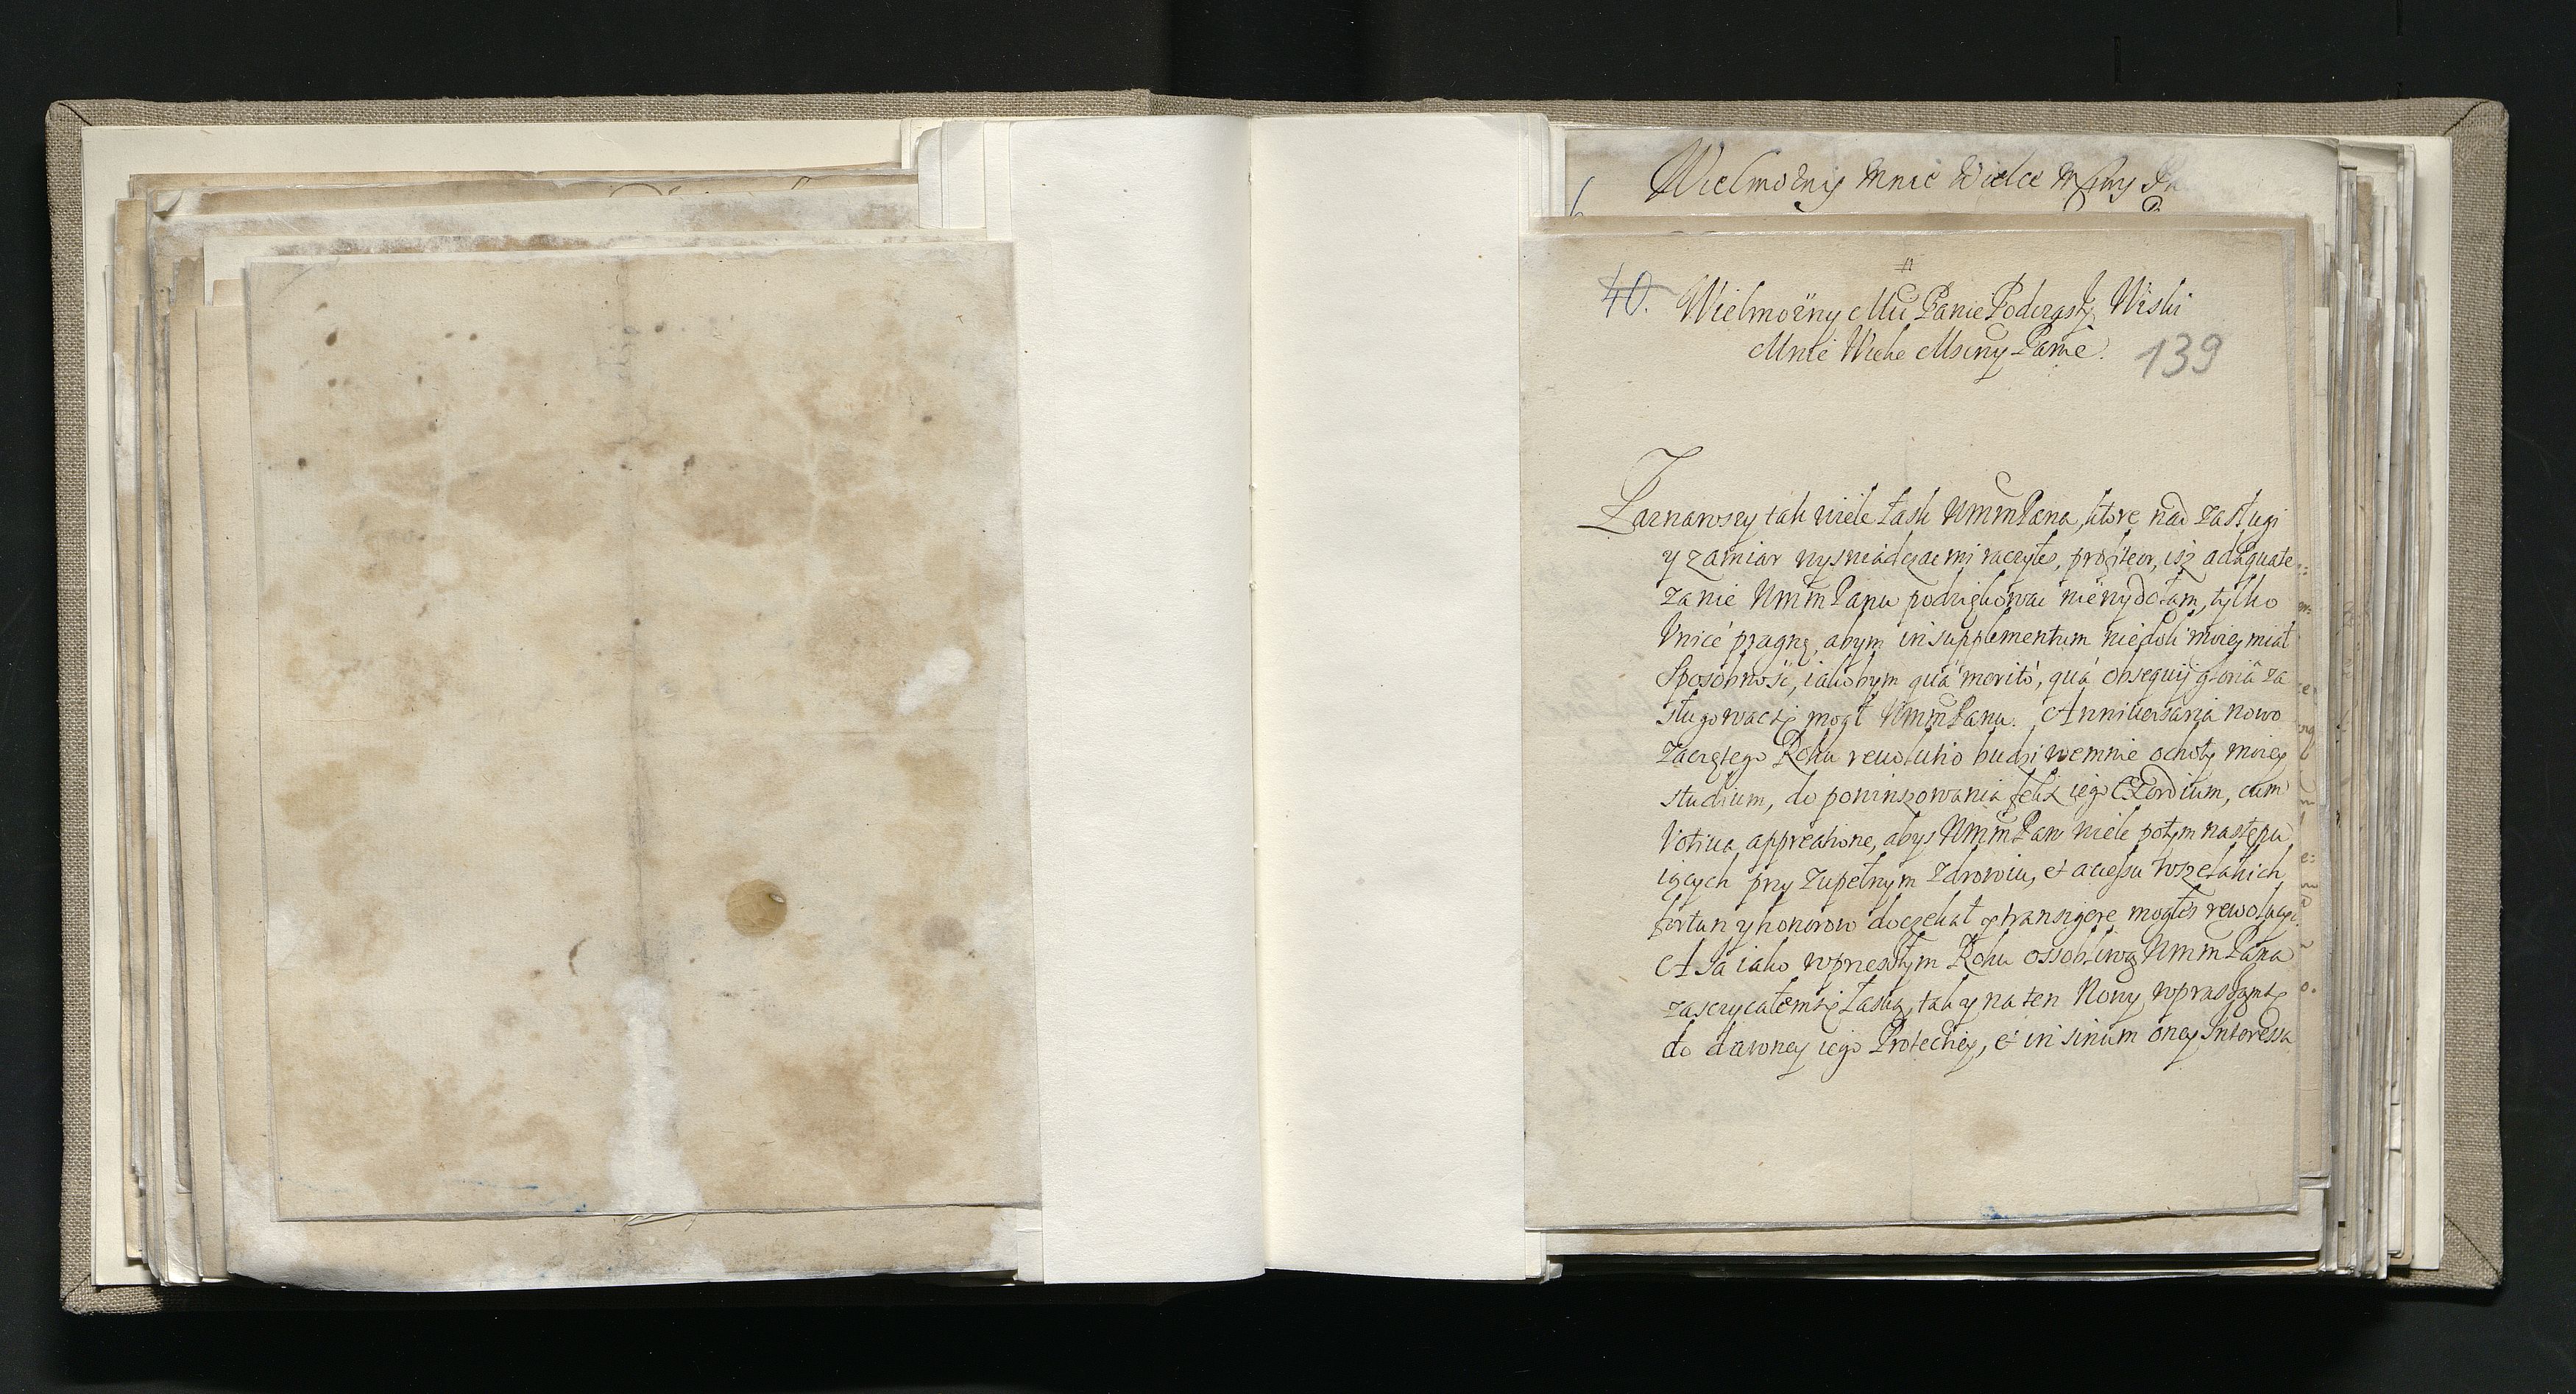 Wielmozny Mnie Wielce Mswy Pa
40.
Wielmożny Mci Panie Podczaszy Wiski
Mnie Wielce Msciwy Panie.
139
Zaznawszy tak wiele łask WMM Pana, ktore nad zasługi
y zamiar wyswiadczac mi raczyłes, profiteor, isz adæquate
za nie WMM Panu podziękowac niewydołam, tylko
Vnice pragnę, abym in supplementum niedoli moiey miał
Sposobnosc, iakobym quá meritó, quá obsequij gloriâ za
sługowac się mogł WMM Panu. Anniuersaria nowo
zaczętego Roku reuolutio budzi wemnie ochoty moiey
studium, do powinszowania felix iego Exordium, cum
Votiua appreatione, abys WMM Pan wiele potym następu
iących przy zupełnym zdrowiu, et acessu wszelakich
fortun y honorow doczekał y transigere mogłes rewolucyi.
A Ja iako wprzeszłym Roku ossobliwą WMM Pana
zasczycałem się łaską, tak y na ten Nowy wpraszam się
do dawney iego Protectiey, et in sinum oney Interessa